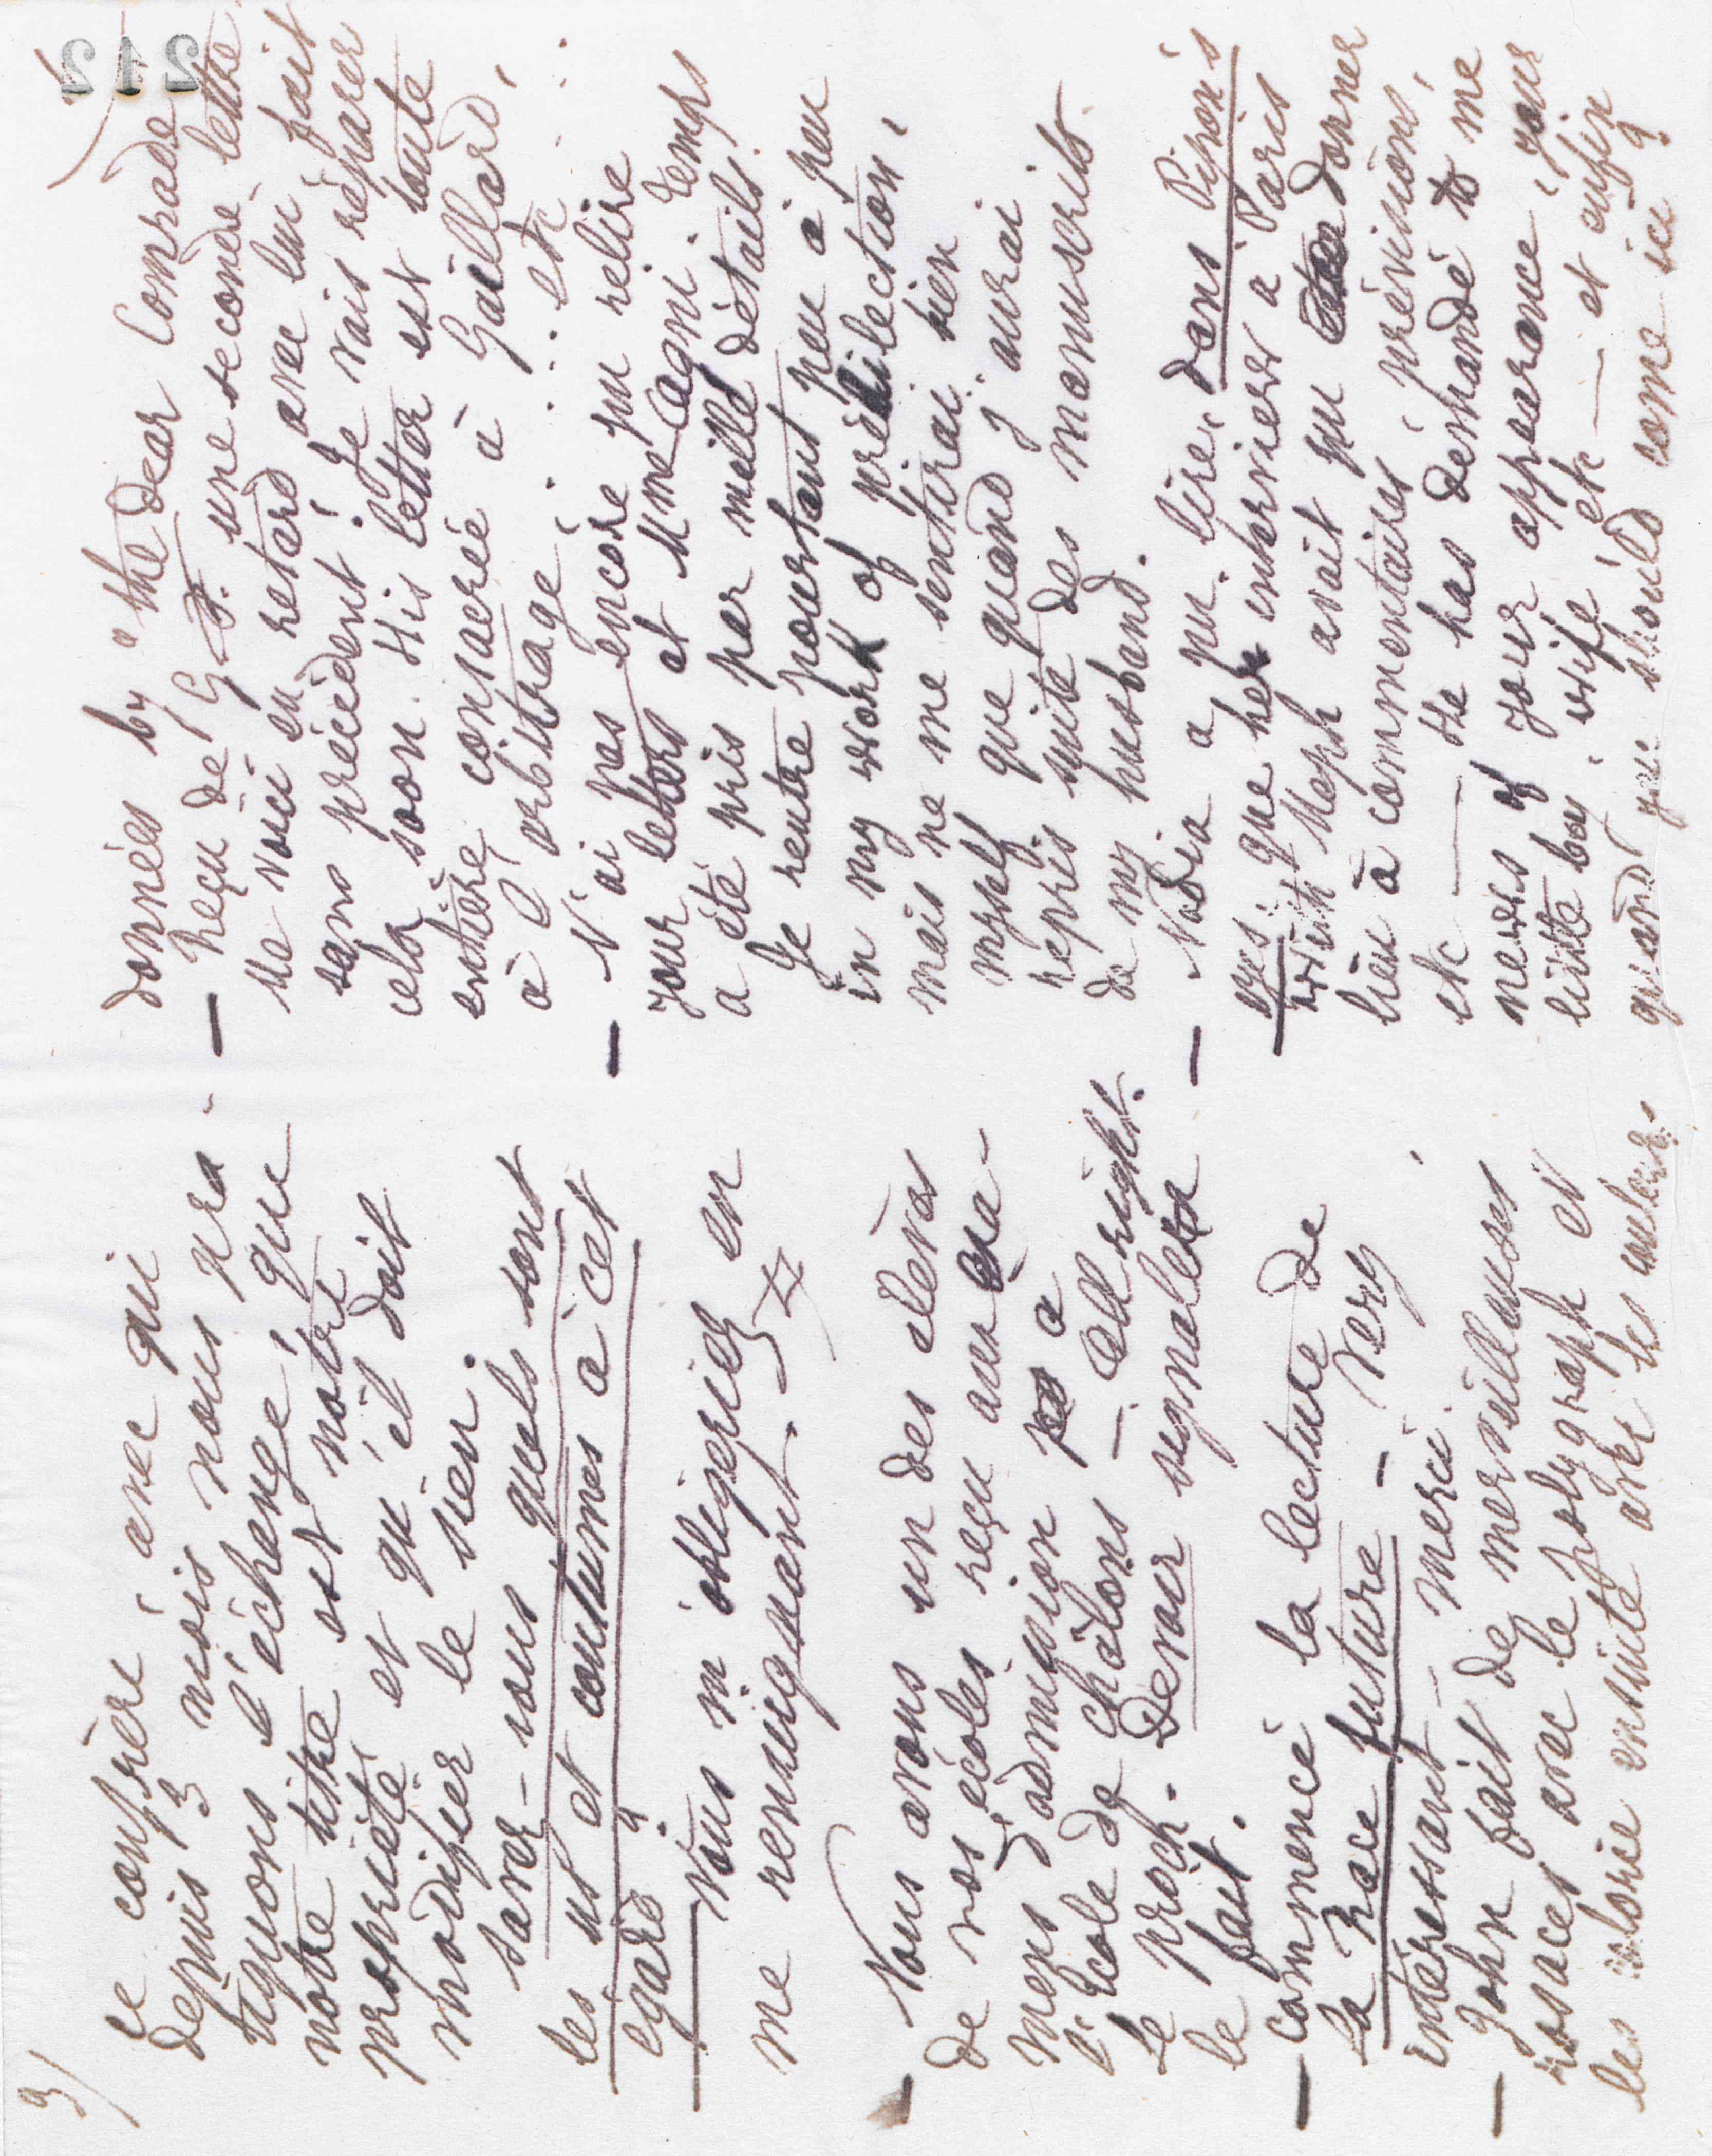 3/
le confrère avec qui
depuis 3 mois nous pra-
tiquons l'échange, que
notre titre est notre
propriété et qu'il doit
modifier le sien.
savez-vous quels sont
les us et coutumes à cet
égard ?
Vous m'obligeriez en
me renseignant.
— Nous avons un des élèves
de nos écoles reçu aux exa-
mens d'admission à
l'école de Châlons — All right.
Le proch. Devoir signalera
le fait.
— Commencé la lecture de
la Race future — Very
intéressant — merci.
— John fait de merveilleuses
rosaces avec le polygraph et
les colorie ensuite avec les couleurs
données by "the dear Comrade"
— Reçu de G. une seconde lettre
Me voici en retard avec lui fait
sans précédent ! Je vais réparer
cela soon. His letter est toute
entière consacrée à Gaillard,
à l'arbitrage . . . etc . .
— N'ai pas encore pu relire
your letters et Mme Cagni. Temps
a été pris par mille détails
Je rentre pourtant peu à peu
in my work of prédilection,
mais ne me sentirai bien
myself que quand j'aurai
repris suite des manuscrits
de my husband.
— Nadia a pu lire dans Piponis
eyes que her interview a Paris
with Meph avait pu donner
lieu à commentaires prévisions,
etc — He has demandé to me
news of your appearance, your
little boy, wife etc — et enfin
quand you should come ici ?
212